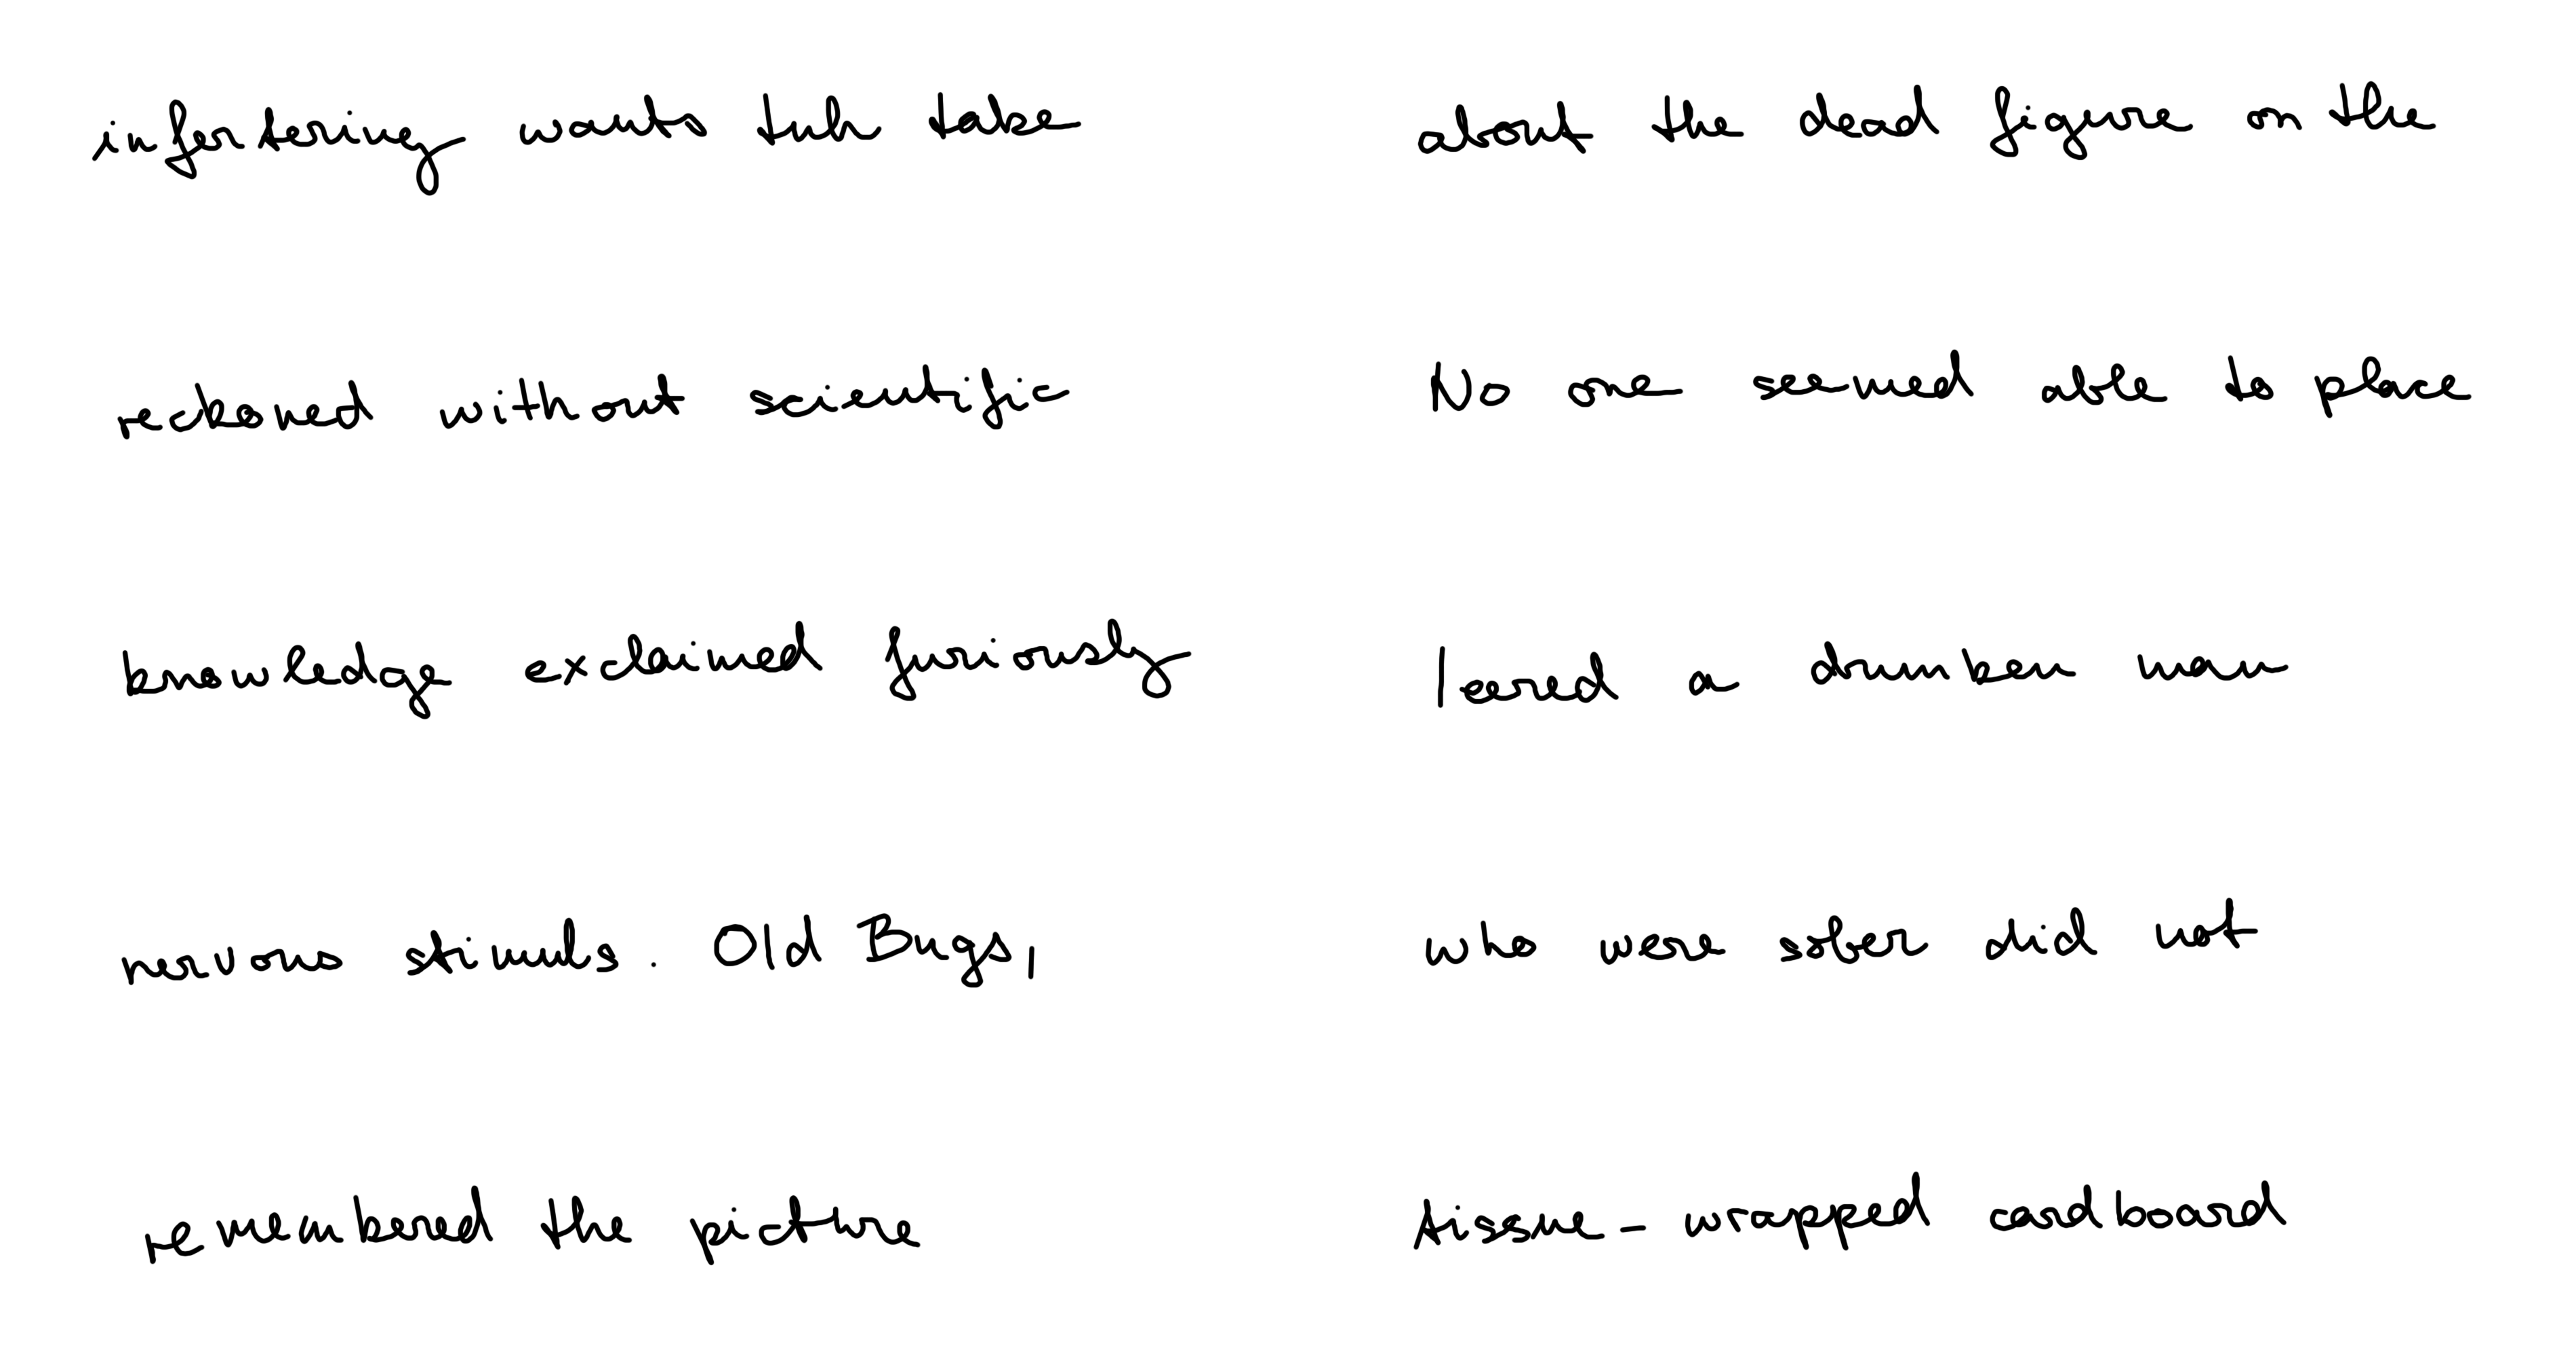 infertering wants tuh take
reckoned without scientific
knowledge exclaimed furiously
nervous stimuls. Old Bugs,
remembered the picture
about the dead figure on the
No one seemed able to place
leered a drunken man
who were sober did not
tissue-wrapped cardboard